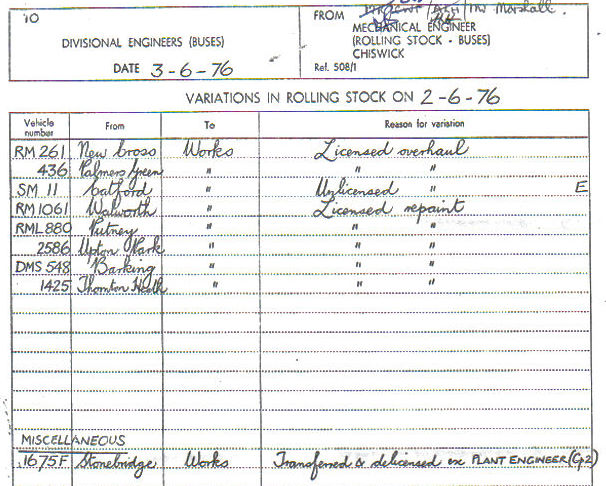 TO
DIVISIONAL ENGINEERS (BUSES)
DATE 3-6-76
FROM Mr Marshall.
MECHANICAL ENGINEER
(ROLLING STOCK - BUSES)
CHISWICK
Ref. 508/1
VARIATIONS IN ROLLING STOCK ON 2-6-76
Vehicle number From To Reason for variation
RM 261 New Cross Works Licensed overhaul
436 Palmers Green " " "
SM 11 Catford " Unlicensed " E
RM 1061 Walworth " Licensed repaint
RML 880 Putney " " "
2586 Upton Park " " "
DMS 548 Barking " " "
1425 Thornton Heath " " "
MISCELLANEOUS
1675F Stonebridge Works Transferred & delicensed ex PLANT ENGINEER (Gp2)